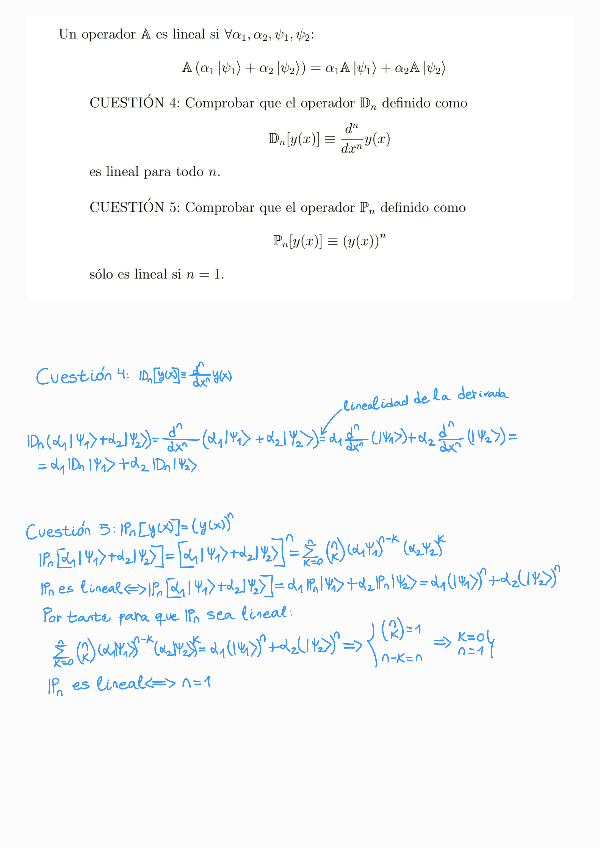 Un operador 𝔸 es lineal si ∀α₁, α₂, ψ₁, ψ₂:
𝔸 (α₁ |ψ₁⟩ + α₂ |ψ₂⟩) = α₁𝔸 |ψ₁⟩ + α₂𝔸 |ψ₂⟩
CUESTIÓN 4: Comprobar que el operador 𝔻ₙ definido como
𝔻ₙ[y(x)] ≡ dⁿ/dxⁿ y(x)
es lineal para todo n.
CUESTIÓN 5: Comprobar que el operador ℙₙ definido como
ℙₙ[y(x)] ≡ (y(x))ⁿ
sólo es lineal si n = 1.
Cuestión 4: 𝔻ₙ[y(x)] ≡ dⁿ/dxⁿ y(x)
linealidad de la derivada
𝔻ₙ(α₁|Ψ₁⟩+α₂|Ψ₂⟩) = dⁿ/dxⁿ (α₁|Ψ₁⟩ + α₂|Ψ₂⟩) = α₁ dⁿ/dxⁿ (|Ψ₁⟩) + α₂ dⁿ/dxⁿ (|Ψ₂⟩) =
= α₁𝔻ₙ|Ψ₁⟩ + α₂𝔻ₙ|Ψ₂⟩
Cuestión 5: ℙₙ[y(x)] = (y(x))ⁿ
ℙₙ[α₁|Ψ₁⟩+α₂|Ψ₂⟩] = [α₁|Ψ₁⟩+α₂|Ψ₂⟩]ⁿ = ∑ₖ₌₀ⁿ (n k) (α₁Ψ₁)ⁿ⁻ᵏ (α₂Ψ₂)ᵏ
ℙₙ es lineal ⟺ ℙₙ[α₁|Ψ₁⟩+α₂|Ψ₂⟩] = α₁ℙₙ|Ψ₁⟩+α₂ℙₙ|Ψ₂⟩ = α₁(|Ψ₁⟩)ⁿ + α₂(|Ψ₂⟩)ⁿ
Por tanto para que ℙₙ sea lineal:
∑ₖ₌₀ⁿ (n k) (α₁|Ψ₁⟩)ⁿ⁻ᵏ (α₂|Ψ₂⟩)ᵏ = α₁(|Ψ₁⟩)ⁿ + α₂(|Ψ₂⟩)ⁿ ⟹ { (n k) = 1 n-k=n ⟹ k=0 n=1 }
ℙₙ es lineal ⟺ n=1